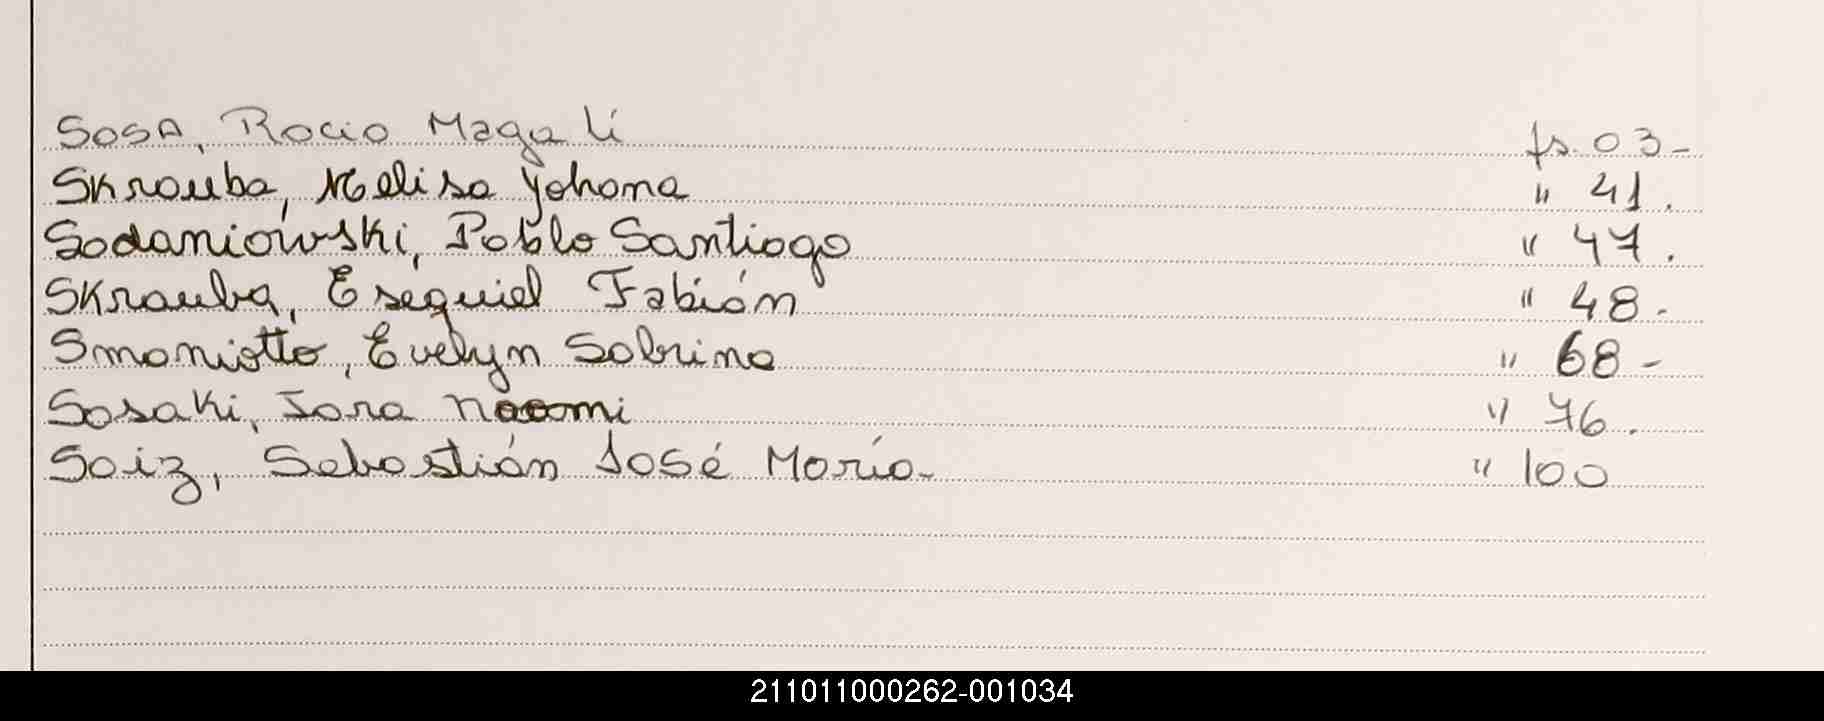 Sosa, Rocio Magali fs. 03-
Skrauba, Melisa Yohana " 41.
Sadaniowski, Pablo Santiago " 47.
Skrauba, Esequiel Fabián " 48.
Smaniotto, Evelyn Sabrina " 68-
Sasaki, Iara Naomi " 76.
Saiz, Sebastián José María- " 100
211011000262-001034